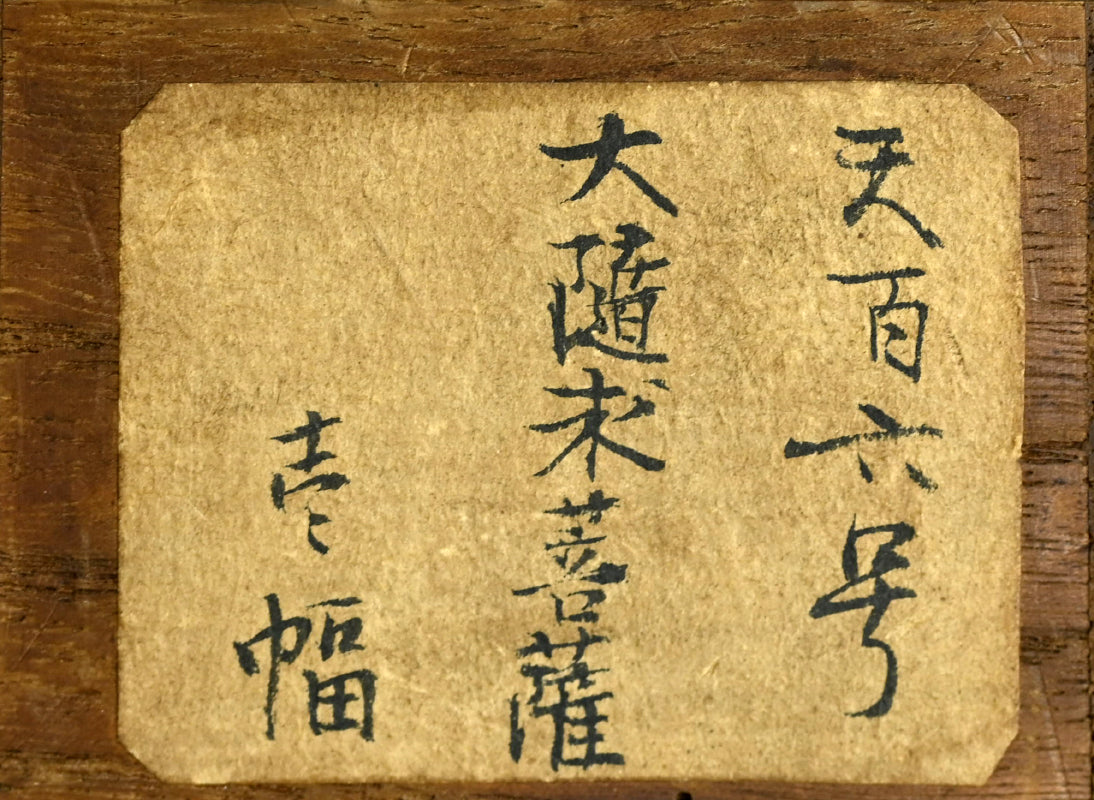 天百六号
大随求菩薩
壱幅